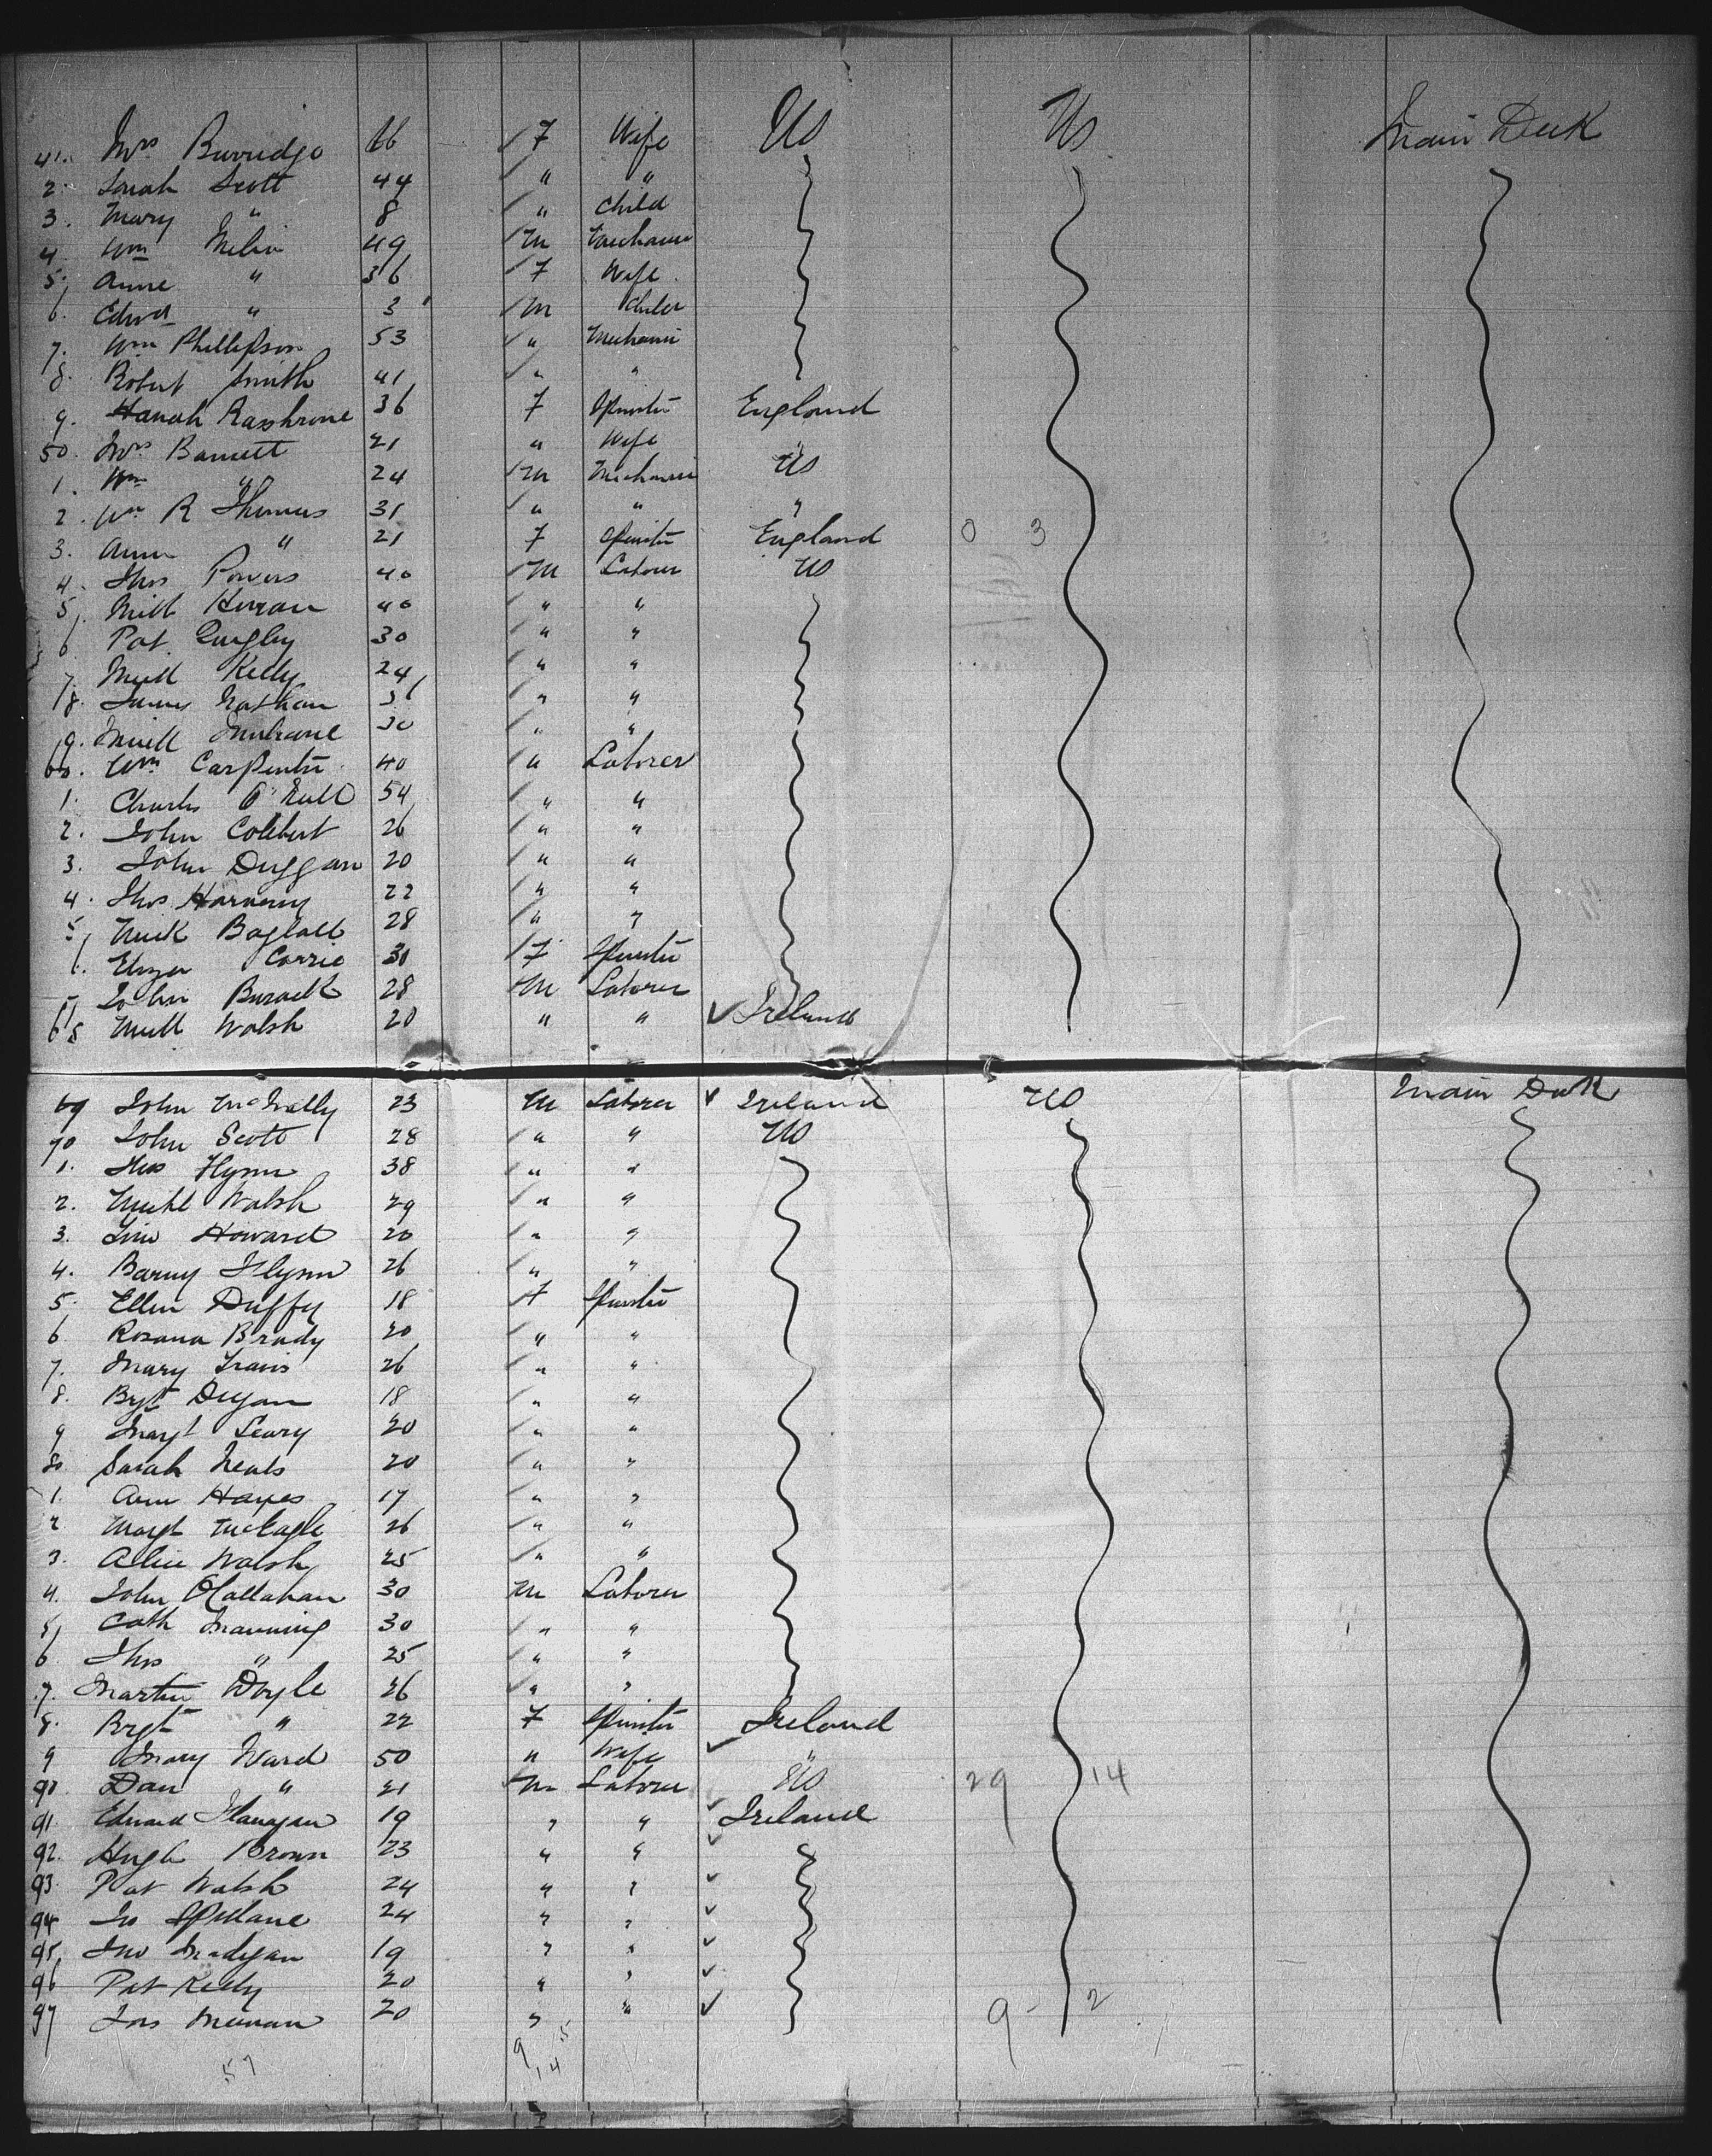 41. Mrs Burridge 66 F Wife US US Main Deck
2. Sarah Scott 44 " "
3. Mary " 8 " Child
4. Wm 49 M Mechanic
5. Anne " 36 F Wife
6. Edwd " 3 M Child
7. Wm Phillipson 53 " Mechanic
8. Robert Smith 41 " "
9. Hanah 36 F Spinster England
50. Mrs Barnett 21 " Wife "
1. Wm " 24 M Mechanic US
2. Wm R Thomas 31 " " "
3. Ann " 21 F Spinster England 0 3
4. Thos Powers 40 M Laborer US
5. Michl 40 " "
6 Pat. Quigley 30 " "
7. Michl Kelly 24 " "
8. James 36 " "
9. Michl 30 " "
60. Wm Carpenter 40 " Laborer
1. Charles O'Neill 54 " "
2. John Colebert 26 " "
3. John Duggan 20 " "
4. Thos 22 " "
5. 28 " "
6. Corrie 30 F Spinster
7 John 28 M Laborer
68 Michl Walsh 20 " " Ireland
69 John McNally 23 M Laborer Ireland US Main Deck
70 John Scott 28 " " US
1. Thos Flynn 38 " "
2. Michl Walsh 29 " "
3. Howard 20 " "
4. Barny Flynn 26 " "
5. Ellen Duffy 18 F Spinster
6 Rosana Brady 20 " "
7. Mary Travis 26 " "
8. Bgt 18 " "
9 Margt Leary 20 " "
80 Sarah 20 " "
1. Ann Hayes 17 " "
2 Margt 26 " "
3. Alice Walsh 25 " "
4. John O'Callahan 30 M Laborer
5, Cath Manning 30 " "
6 Thos " 25 " "
7. Martin Doyle 26 " "
8. Brgt " 22 F Spinster Ireland
9 Mary Ward 50 " Wife "
90 Dan " 21 M Laborer US 29 14
91 Edward Flanagan 19 " " Ireland
92. Hugh Brown 23 " "
93 Pat Walsh 24 " "
94 Spillane 24 " "
95, Jno Madigan 19 " "
96 Pat Kelly 20 " "
97 20 " " 9 - 2
57 9 14 5